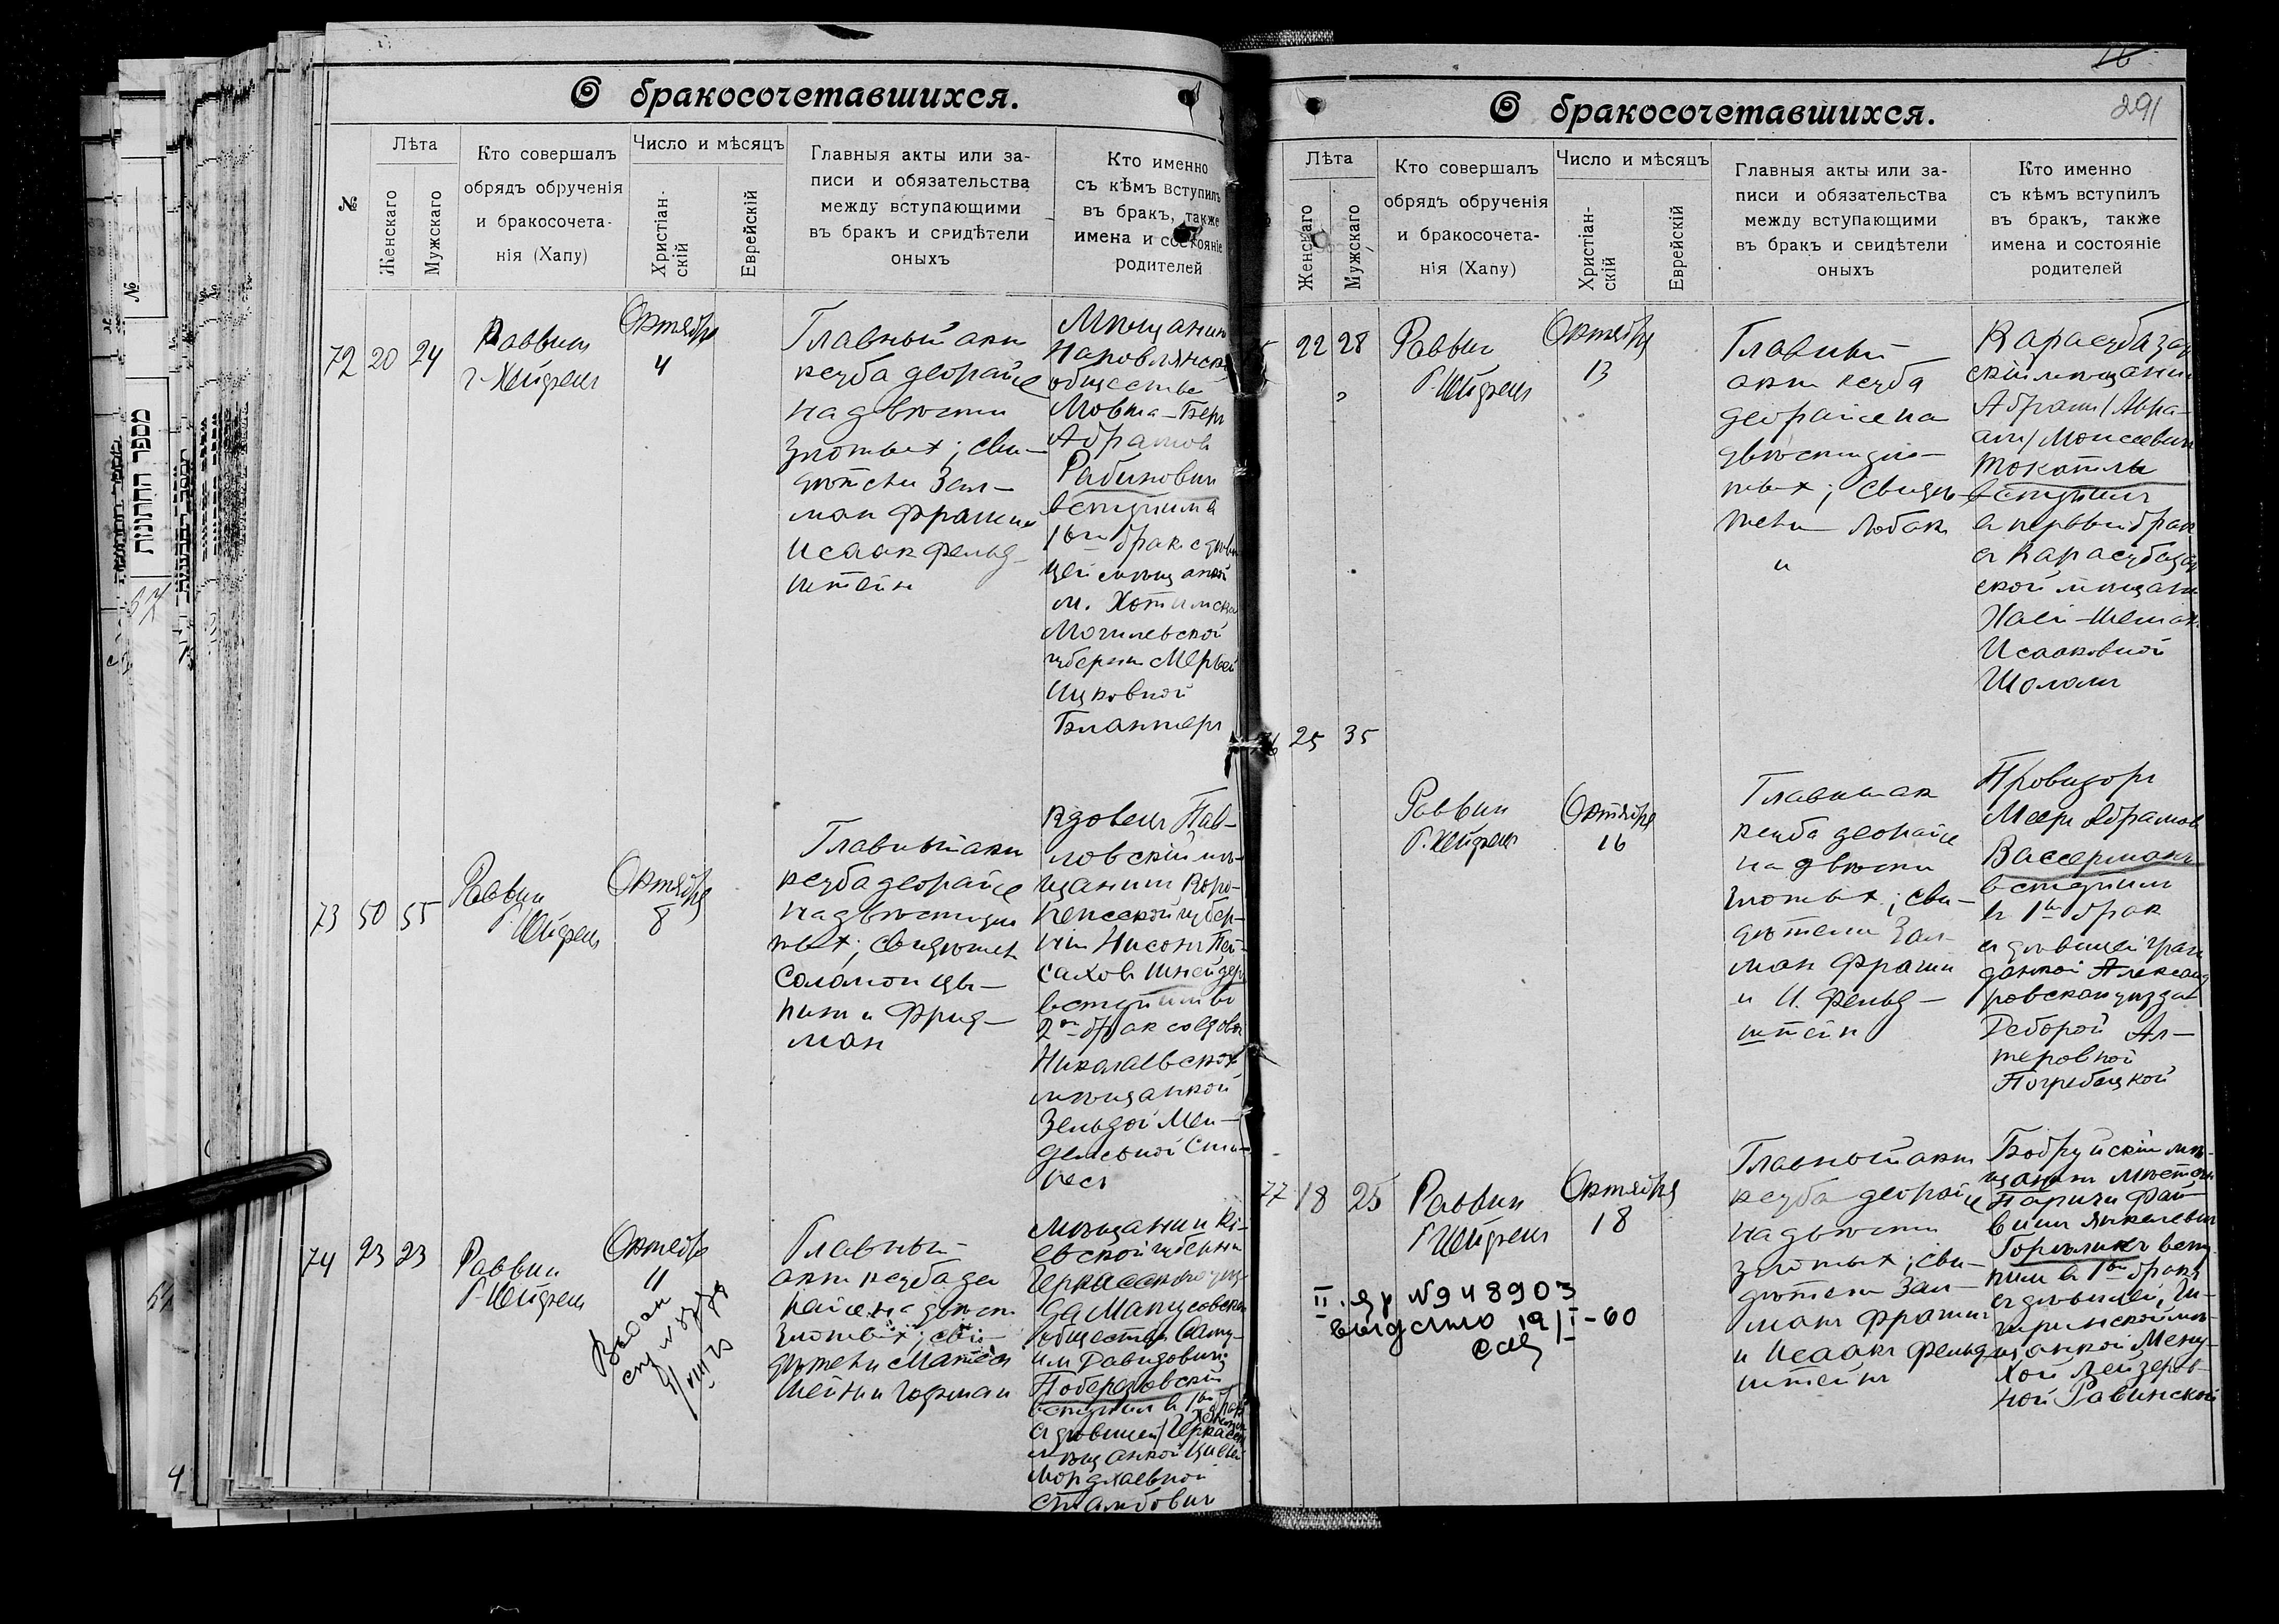 О бракосочетавшихся.
№
Лѣта
Женскаго
Мужскаго
Кто совершалъ
обрядъ обрученія
и бракосочета-
нія (Хапу)
Число и мѣсяцъ
Христіан-
скій
Еврейскій
Главныя акты или за-
писи и обязательства
между вступающими
въ бракъ и свидѣтели
оныхъ
Кто именно
съ кѣмъ вступилъ
въ бракъ, также
имена и состояніе
родителей
72 20 24
Раввин
г. Шейдрен
Октября
4
Главный акт
кетуба деорайсе
на двести
злотых; сви-
детели Зал-
ман Фрашин
Исаак Фельд-
штейн
Мещанин
Наровлянск
общества
Мовша-Бер
Абрамов
Рабинович
вступил в
1ый брак с деви
цей мещанкой
м. Хотимска
Могилевской
губернии Мерьей
Ицковной
Блантер
73 50 55
Раввин
Г. Шейдрен
Октября
8
Главный акт
кетуба деорайсе
на двести зло
тых; свидетели
Соломон Цы-
пин и Фрид-
ман
Вдовец Пав-
ловский ме-
щанин Воро-
нежской губер-
нии Нисон Пей-
сахов Шнейдер
вступил во
2ой брак со вдовой
Николаевской
мещанкой
Зельдой Мен-
делевной
74 23 23
Раввин
Г. Шейдрен
Октября
11
Главный
акт кетуба део
райсе на двести
злотых; сви-
детели Матес
Шейн и Гофман
Мещанин Ки-
евской губернии
Черкасского уез-
да Мацусовскаго
общества Саму-
ил Давидович
Побережский
вступил в 1ый брак
с девицей Черкасск
мещанкой Цивьей
Мордхаевной
מספר החתונות
О бракосочетавшихся.
291
Лѣта
Женскаго
Мужскаго
Кто совершалъ
обрядъ обрученія
и бракосочета-
нія (Хапу)
Число и мѣсяцъ
Христіан-
скій
Еврейскій
Главныя акты или за-
писи и обязательства
между вступающими
въ бракъ и свидѣтели
оныхъ
Кто именно
съ кѣмъ вступилъ
въ бракъ, также
имена и состояніе
родителей
22 28
Раввин
Г. Шейдрен
Октября
13
Главный
акт кетуба
деорайсе на
двести зло-
тых; свиде-
тели Лобак
и
Карасубазар
ский мещанин
Абрам/Авра-
ам/Моисеевич
Токатлы
вступил
в первый брак
с Карасубазар
ской мещан
Исааковной
Шолом
76 25 35
Раввин
Г. Шейдрен
Октября
16
Главный ак
кетуба деорайсе
на двести
злотых; сви-
детели Зал-
ман Фрашин
и И. Фельд-
штейн
Провизор
Меер Абрамов
Вассерман
вступил
в 1ый брак
с девицей граж
данкой Александ
ровскаго уезда
Деборой Ал-
теровной
Погребецкой
77 18 25
Раввин
Г. Шейдрен
Октября
18
Главный акт
кетуба деорайсе
на двести
злотых; сви-
детели Зал-
ман Фрашин
и Исаак Фельд-
штейн
Бобруйский ме-
щанин местечк
Паричи Фай-
виш Янкелевич
Горелик всту
пил в 1ый брак
с девицей, Чи-
гиринской ме-
щанкой Мену-
хой Лейзеров-
ной Равинской
№ 948903
выдано 19/I-60